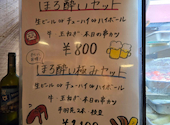 ほろ酔いセット
生ビール or チューハイ or ハイボール
牛 玉ねぎ 本日の串カツ
¥800
ほろ酔い極みセット
生ビール or チューハイ or ハイボール
牛 玉ねぎ 本日の串カツ
手羽先2本 枝豆